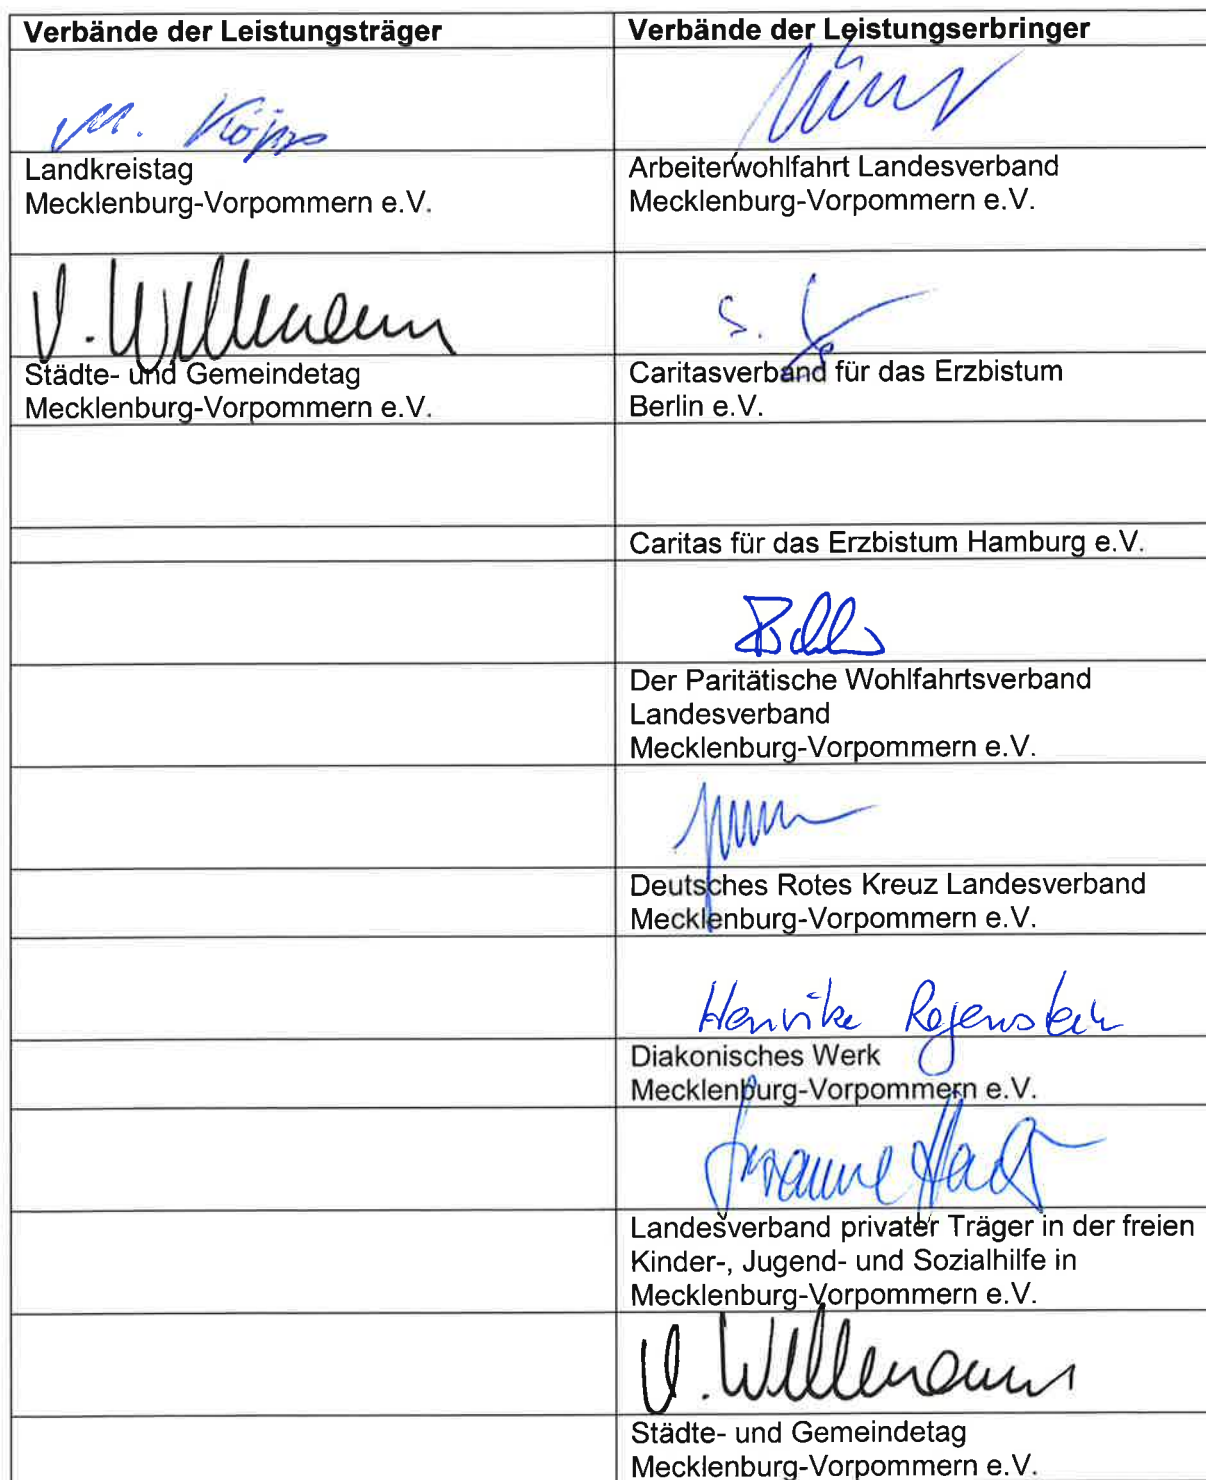 Verbände der Leistungsträger
Verbände der Leistungserbringer
M. Köpp
Landkreistag
Mecklenburg-Vorpommern e.V.
Arbeiterwohlfahrt Landesverband
Mecklenburg-Vorpommern e.V.
V. Wellmann
S.
Städte- und Gemeindetag
Mecklenburg-Vorpommern e.V.
Caritasverband für das Erzbistum
Berlin e.V.
Caritas für das Erzbistum Hamburg e.V.
Der Paritätische Wohlfahrtsverband
Landesverband
Mecklenburg-Vorpommern e.V.
Deutsches Rotes Kreuz Landesverband
Mecklenburg-Vorpommern e.V.
Henrike Regenstein
Diakonisches Werk
Mecklenburg-Vorpommern e.V.
Susanne
Landesverband privater Träger in der freien
Kinder-, Jugend- und Sozialhilfe in
Mecklenburg-Vorpommern e.V.
V. Wellmann
Städte- und Gemeindetag
Mecklenburg-Vorpommern e.V.